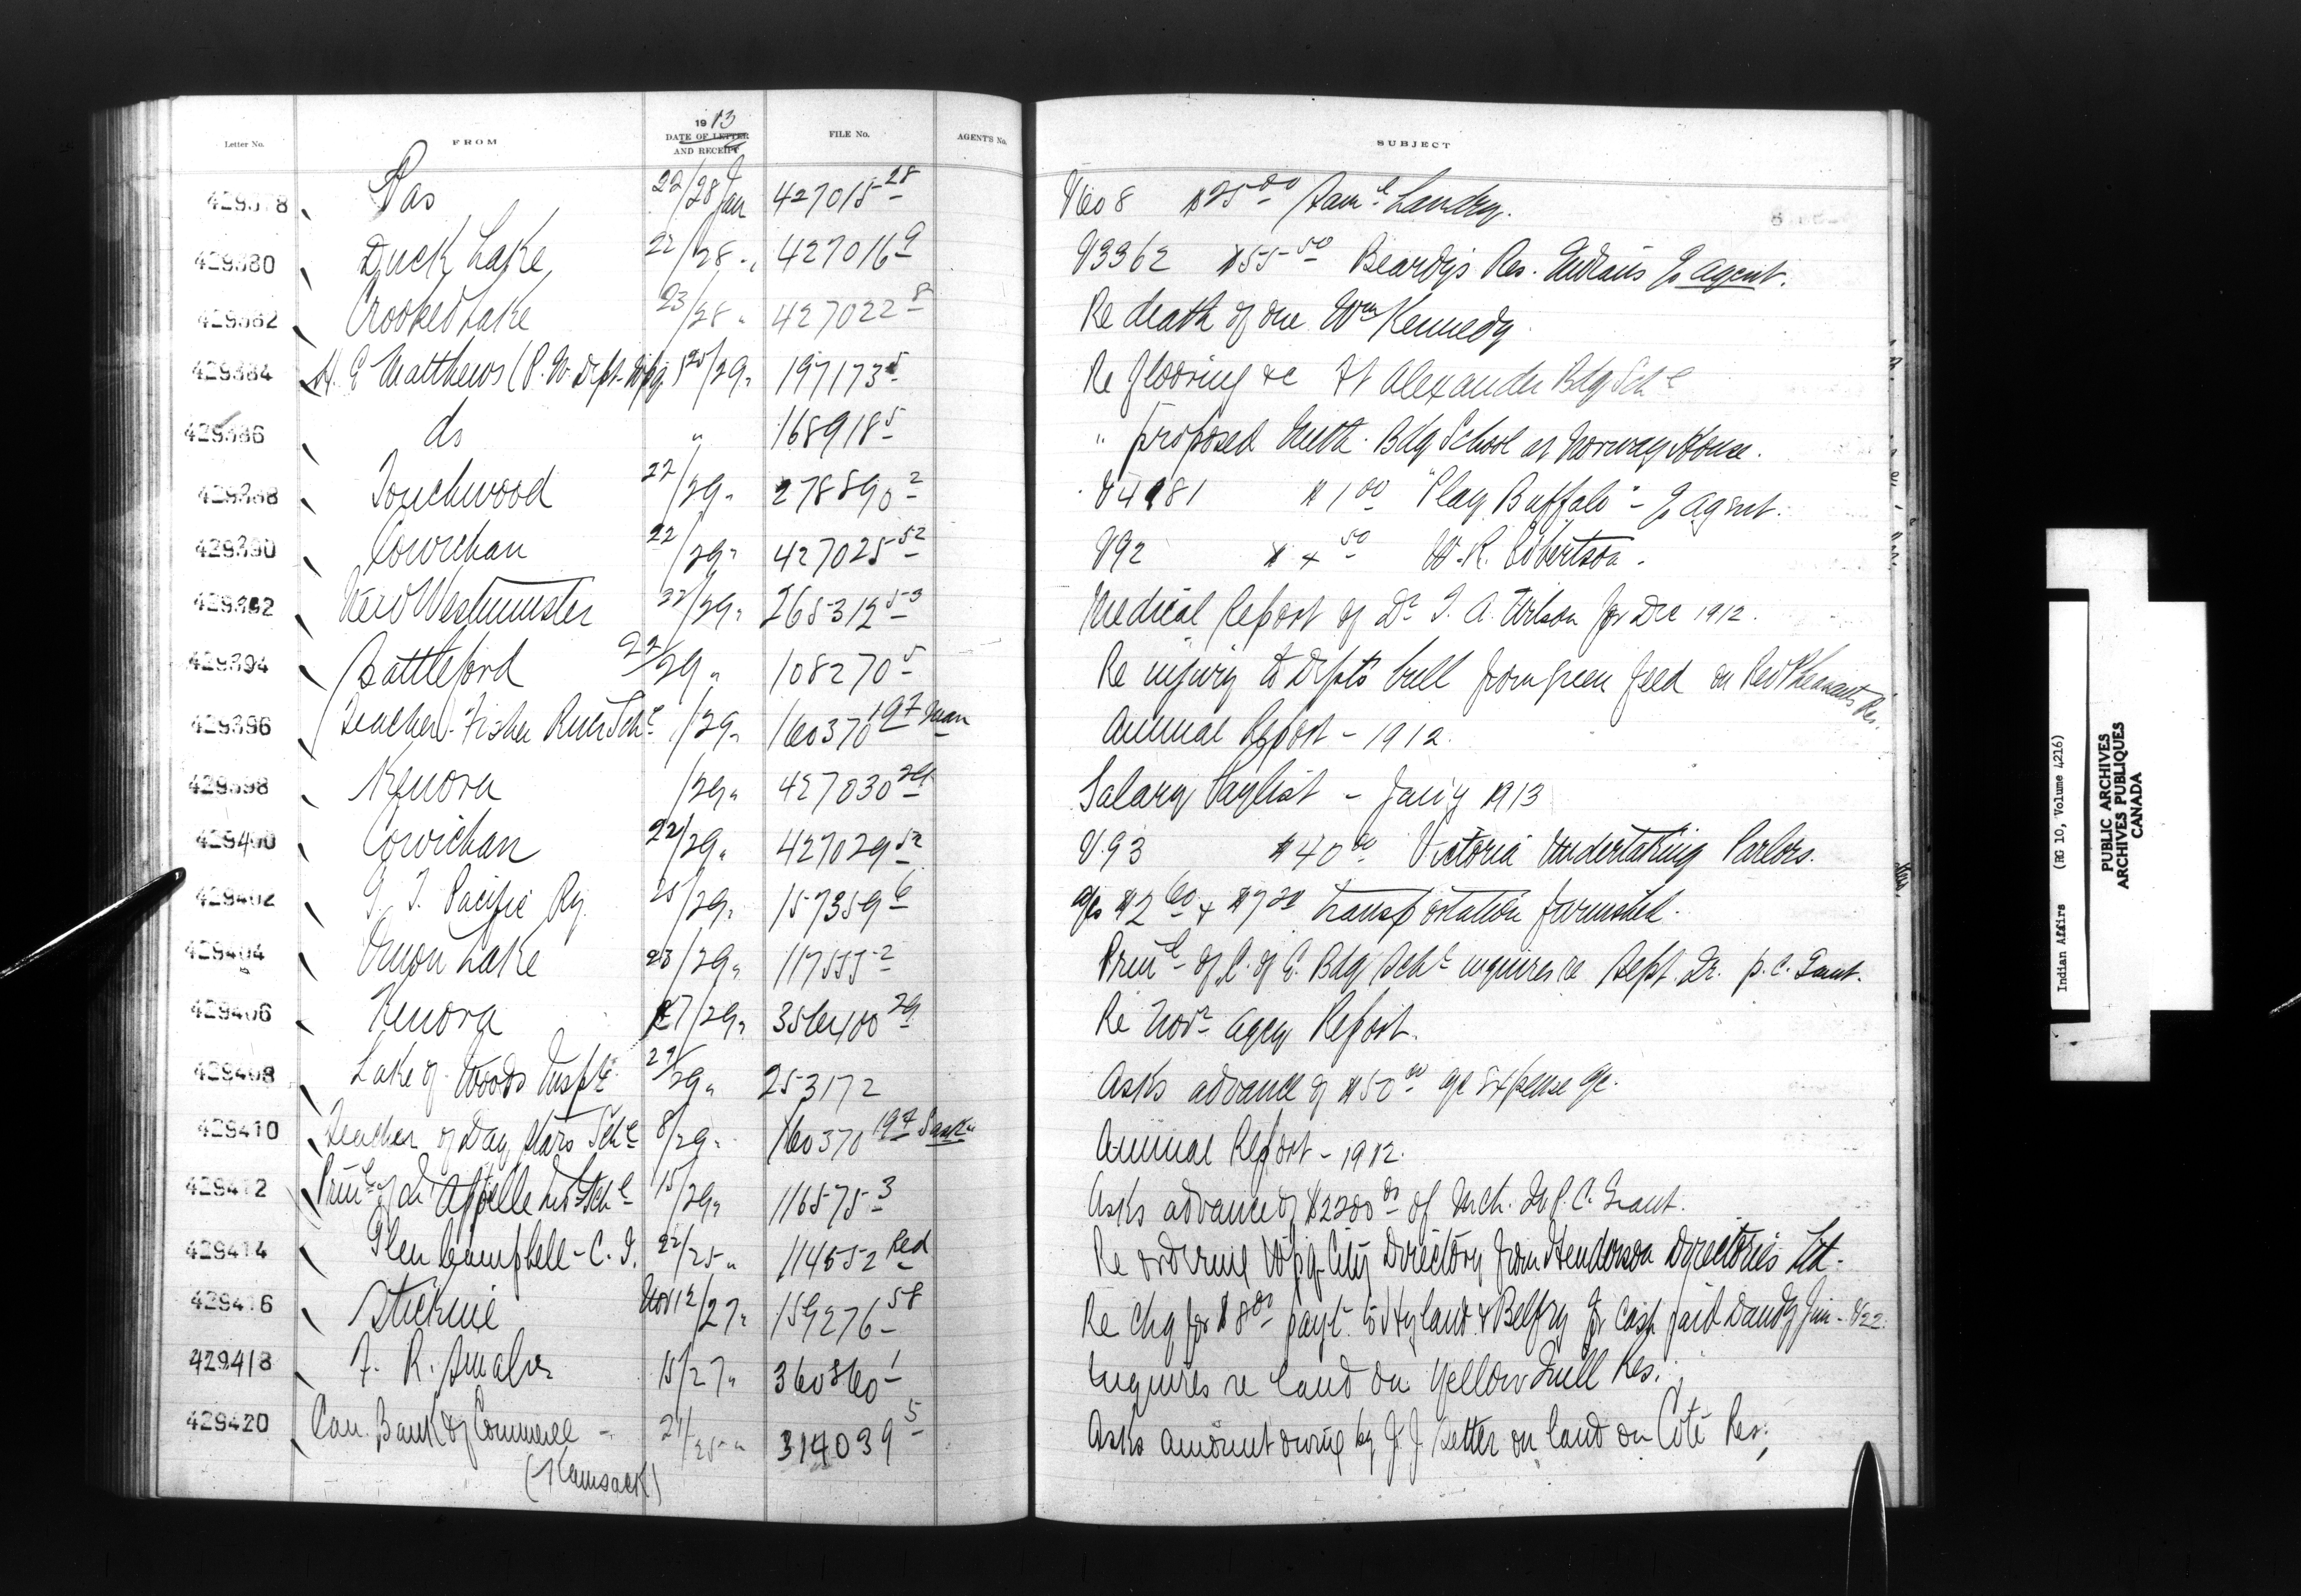 Letter No. FROM 1913 DATE OF LETTER AND RECEIPT FILE No. AGENT'S No. SUBJECT
429378 Pas 22/28 Jan 427015 28 V608 $25.00 Sam'l Landry.
429380 Duck Lake 22/28 " 427016 9 V3362 $55.50 Beardy's Res. Indians Jo Agent.
429382 Crooked Lake 23/28 " 427022 8 Re death of one Wm Kennedy
429384 H. E Matthews (P. W. Dept. Wpg) 25/29 " 197173 5 Re flooring &c Ft Alexander Bdg Schl
429386 do " 168918 5 " proposed Meth. Bdg School at Norway House.
429388 Touchwood 22/29 " 278890 2 V4981 $1.00 "Play Buffalo" - Jo Agent.
429390 Cowichan 22/29 " 427025 52 V92 $4.50 W. R. Robertson.
429392 New Westminster 22/29 " 265312 53 Medical Report of Dr. T. A. Wilson for Dec 1912.
429394 Battleford 22/29 " 108270 5 Re injury to Dept's bull from green feed on Red Pheasants Res.
429396 Teacher - Fisher River Schl /29 " 160370 197 Man Annual Report - 1912.
429398 Kenora /29 " 427030 29 Salary Paylist - Jan'y 1913
429400 Cowichan 22/29 " 427029 52 V.93 $40.00 Victoria Undertaking Parlors.
429402 G. T. Pacific Ry. 25/29 " 157359 6 a/cs $2.60 + $7.20 transportation furnished.
429404 Onion Lake 23/29 " 117555 2 Prinl of C. of E. Bdg Schl inquires re Sept. Qr. p. c. Grant.
429406 Kenora 27/29 " 356400 29 Re Novr agcy Report.
429408 Lake of Woods Insp'te 27/29 " 253172 Asks advance of $50.00 a/c expense a/c.
429410 Teacher of Day Stars Schl 8/29 " 160370 197 Sask. Annual Report - 1912.
429412 Prinl of Qu'Appelle Ind Schl 15/29 " 116575 3 Asks advance of $2200.00 of Mch. Qr P. C. Grant.
429414 Glen Campbell - C. I. 22/25 " 114552 Red Re ordering Wpg City Directory from Henderson Directories Ltd.
429416 Stickine Nov 12/27 " 159276 58 Re chq for $8.00 payt. to Hyland & Belfry for cash paid Dandy Jim - V22.
429418 F. R. 15/27 " 360860 1 Inquires re land on Yellow Quill Res.
429420 Can. Bank of Commerce - 21/25 " 314039 5 Asks amount owing by J. J. Setter on land on Coté Res.
(Kamsack)
Indian Affairs (RG 10, Volume 4216)
PUBLIC ARCHIVES
ARCHIVES PUBLIQUES
CANADA